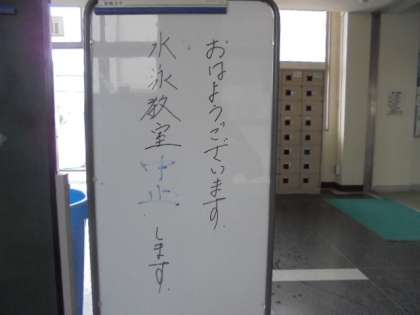 おはようございます。
水泳教室中止します。